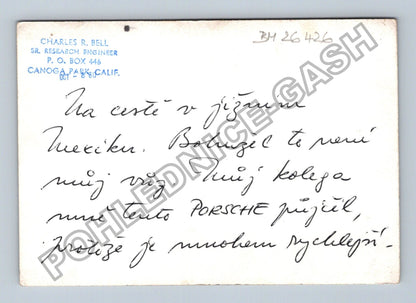 CHARLES R. BELL
SR. RESEARCH ENGINEER
P. O. BOX 446
CANOGA PARK, CALIF.
BH 26426
Na cestě v jižním
Mexiku. Bohužel to není
můj vůz. Můj kolega
mně tento PORSCHE půjčil,
protože je mnohem rychlejší.
POHLEDNICE-GASH